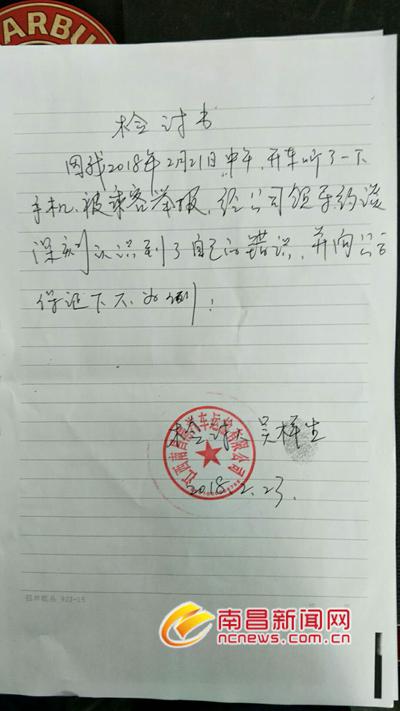 ARBU
检讨书
因我2018年2月21日中午,开车听了一下
手机、被乘客举报,经公司领导约谈
深刻认识到了自己的错误,并向公司
保证下不为例!
检讨人 吴样生
江西南昌 车运 有限公司
2018.2.23.
922-15
南昌新闻网
ncnews.com.cn